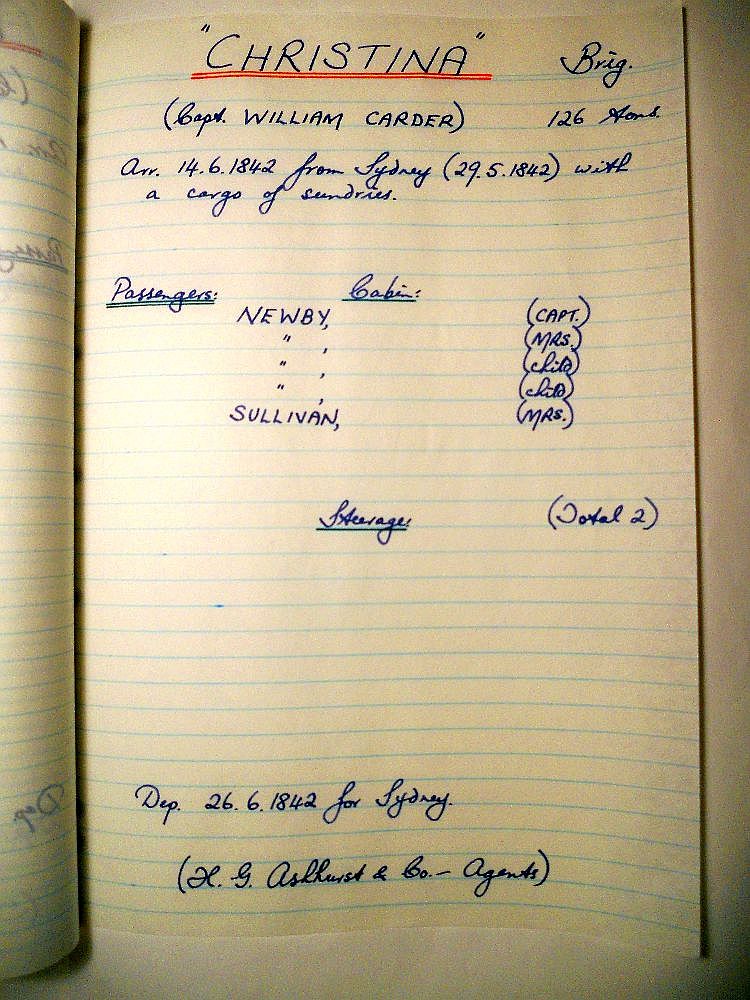 "CHRISTINA" Brig.
(Capt. WILLIAM CARDER) 126 tons.
Arr. 14.6.1842 from Sydney (29.5.1842) with
a cargo of sundries.
Passengers: Cabin:
NEWBY, (CAPT.)
" , (MRS.)
" , (child)
" , (child)
SULLIVAN, (MRS.)
Steerage: (Total 2)
Dep. 26.6.1842 for Sydney.
(H. G. Ashhurst & Co. - Agents)